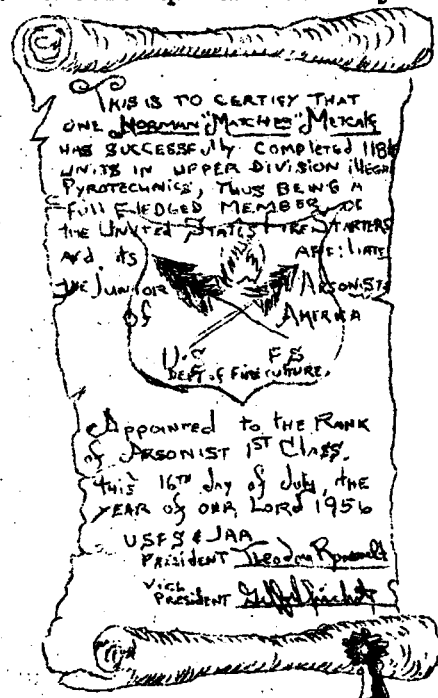 This is to certify that
one Norman "Matches" Metcalf
has successfully completed 118
units in upper division illegal
pyrotechnics, thus being a
full fledged member of
the United States Firestarters
and its affiliate
the Junior Arsonists
of America
U.S. F.S.
Dept. of Fireculture.
Appointed to the Rank
of Arsonist 1st Class.
this 16th day of July, the
year of our Lord 1956
USFS & JAA
President Theodore Roosevelt
Vice
President Gifford Pinchot